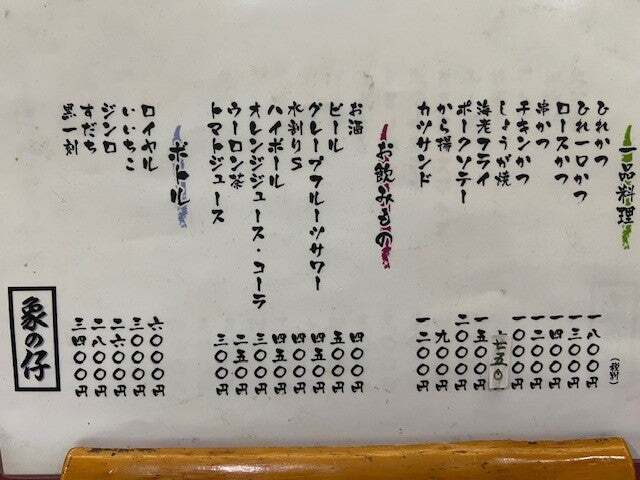 一品料理
(税別)
ひれかつ 一八〇〇円
ひれ一口かつ 一三〇〇円
ロースかつ
串かつ 一二〇〇円
チキンかつ 一〇〇〇円
しょうが焼 一七五〇
海老フライ 一五〇〇円
ポークソテー 二〇〇〇円
から揚 九〇〇円
カツサンド 一二〇〇円
お飲みもの
お酒 四〇〇円
ビール 五〇〇円
グレープフルーツサワー 四五〇円
水割りS 四〇〇円
ハイボール 四五〇円
オレンジジュース・コーラ 三〇〇円
ウーロン茶 二五〇円
トマトジュース 三〇〇円
ボトル
ロイヤル 六〇〇〇円
いいちこ 三〇〇〇円
ジンロ 二六〇〇円
すだち 二八〇〇円
黒一刻 三四〇〇円
象の仔